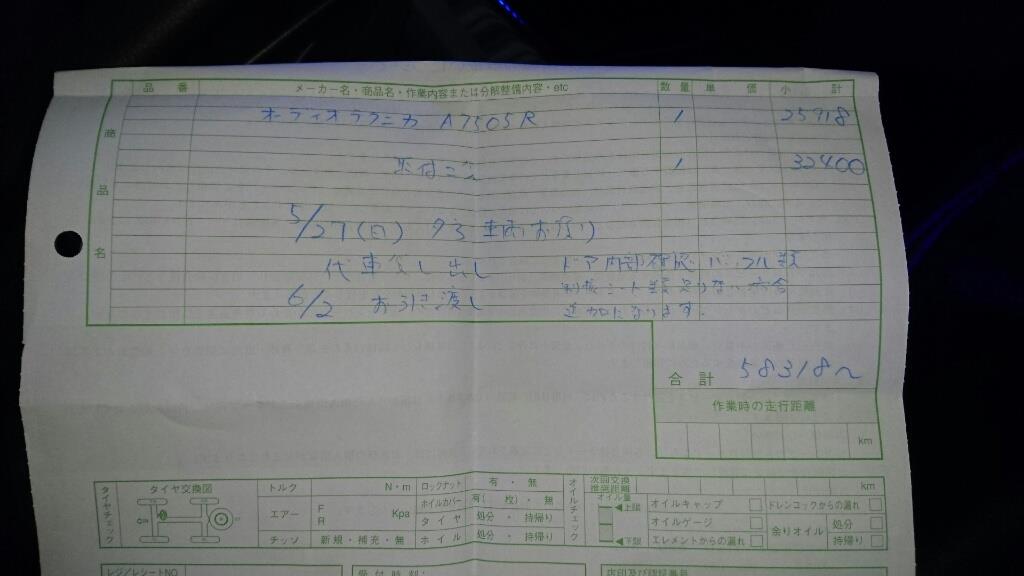 品 番 メーカー名・商品名・作業内容または分解整備内容・etc 数量 単 価 小 計
商品名
オーディオテクニカ A7505R 1 25918
取付工賃 1 32400
5/27(日) 夕方 車両お預り
代車貸し出し ドア内部確認
6/2 お引き渡し
追加になります。
合 計 58318〜
作業時の走行距離
km
タイヤチェック
タイヤ交換図
トルク N・m
エアー F R Kpa
チッソ 新規・補充・無
ロックナット 有・無
ホイルカバー 有( 枚)・無
タイヤ 処分・持帰り
ホイル 処分・持帰り
オイルチェック
次回交換推奨距離 km
オイル量 上限 下限
オイルキャップ ドレンコックからの漏れ
オイルゲージ 余りオイル 処分
エレメントからの漏れ 持帰り
レジ/レシートNO
受付時刻:
店印及び認証番号